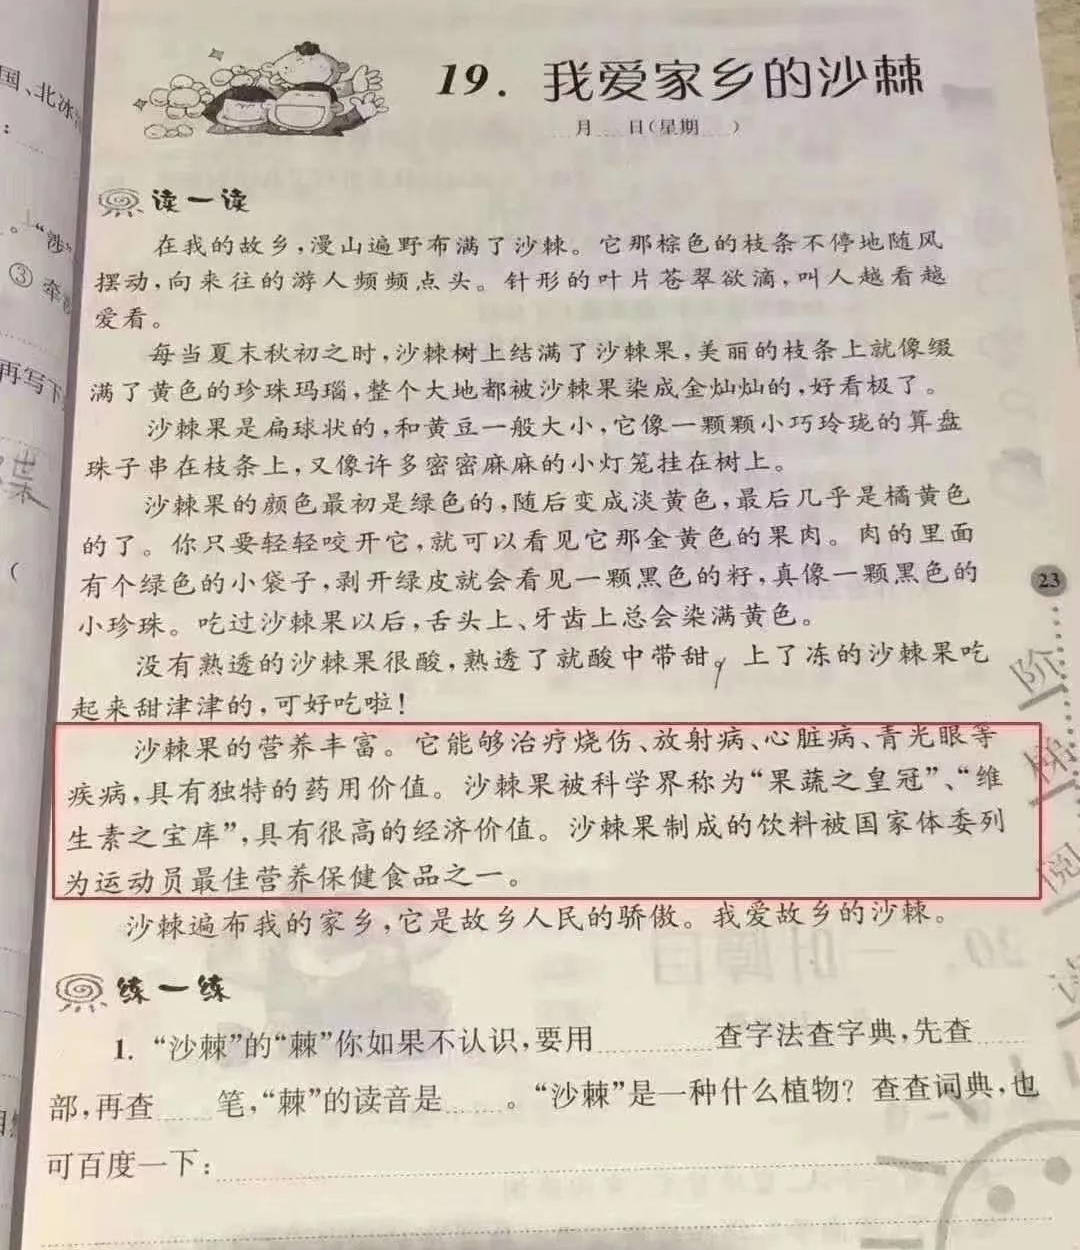 国、北冰
19. 我爱家乡的沙棘
月 日(星期 )
读一读
在我的故乡,漫山遍野布满了沙棘。它那棕色的枝条不停地随风
摆动,向来往的游人频频点头。针形的叶片苍翠欲滴,叫人越看越
爱看。
每当夏末秋初之时,沙棘树上结满了沙棘果,美丽的枝条上就像缀
满了黄色的珍珠玛瑙,整个大地都被沙棘果染成金灿灿的,好看极了。
沙棘果是扁球状的,和黄豆一般大小,它像一颗颗小巧玲珑的算盘
珠子串在枝条上,又像许多密密麻麻的小灯笼挂在树上。
沙棘果的颜色最初是绿色的,随后变成淡黄色,最后几乎是橘黄色
的了。你只要轻轻咬开它,就可以看见它那金黄色的果肉。肉的里面
有个绿色的小袋子,剥开绿皮就会看见一颗黑色的籽,真像一颗黑色的
小珍珠。吃过沙棘果以后,舌头上、牙齿上总会染满黄色。
没有熟透的沙棘果很酸,熟透了就酸中带甜。上了冻的沙棘果吃
起来甜津津的,可好吃啦!
沙棘果的营养丰富。它能够治疗烧伤、放射病、心脏病、青光眼等
疾病,具有独特的药用价值。沙棘果被科学界称为“果蔬之皇冠”、“维
生素之宝库”,具有很高的经济价值。沙棘果制成的饮料被国家体委列
为运动员最佳营养保健食品之一。
沙棘遍布我的家乡,它是故乡人民的骄傲。我爱故乡的沙棘。
练一练
1. “沙棘”的“棘”你如果不认识,要用 查字法查字典,先查
部,再查 笔,“棘”的读音是 。“沙棘”是一种什么植物?查查词典,也
可百度一下:
23
阶
梯
阅
③ 牵
再写下